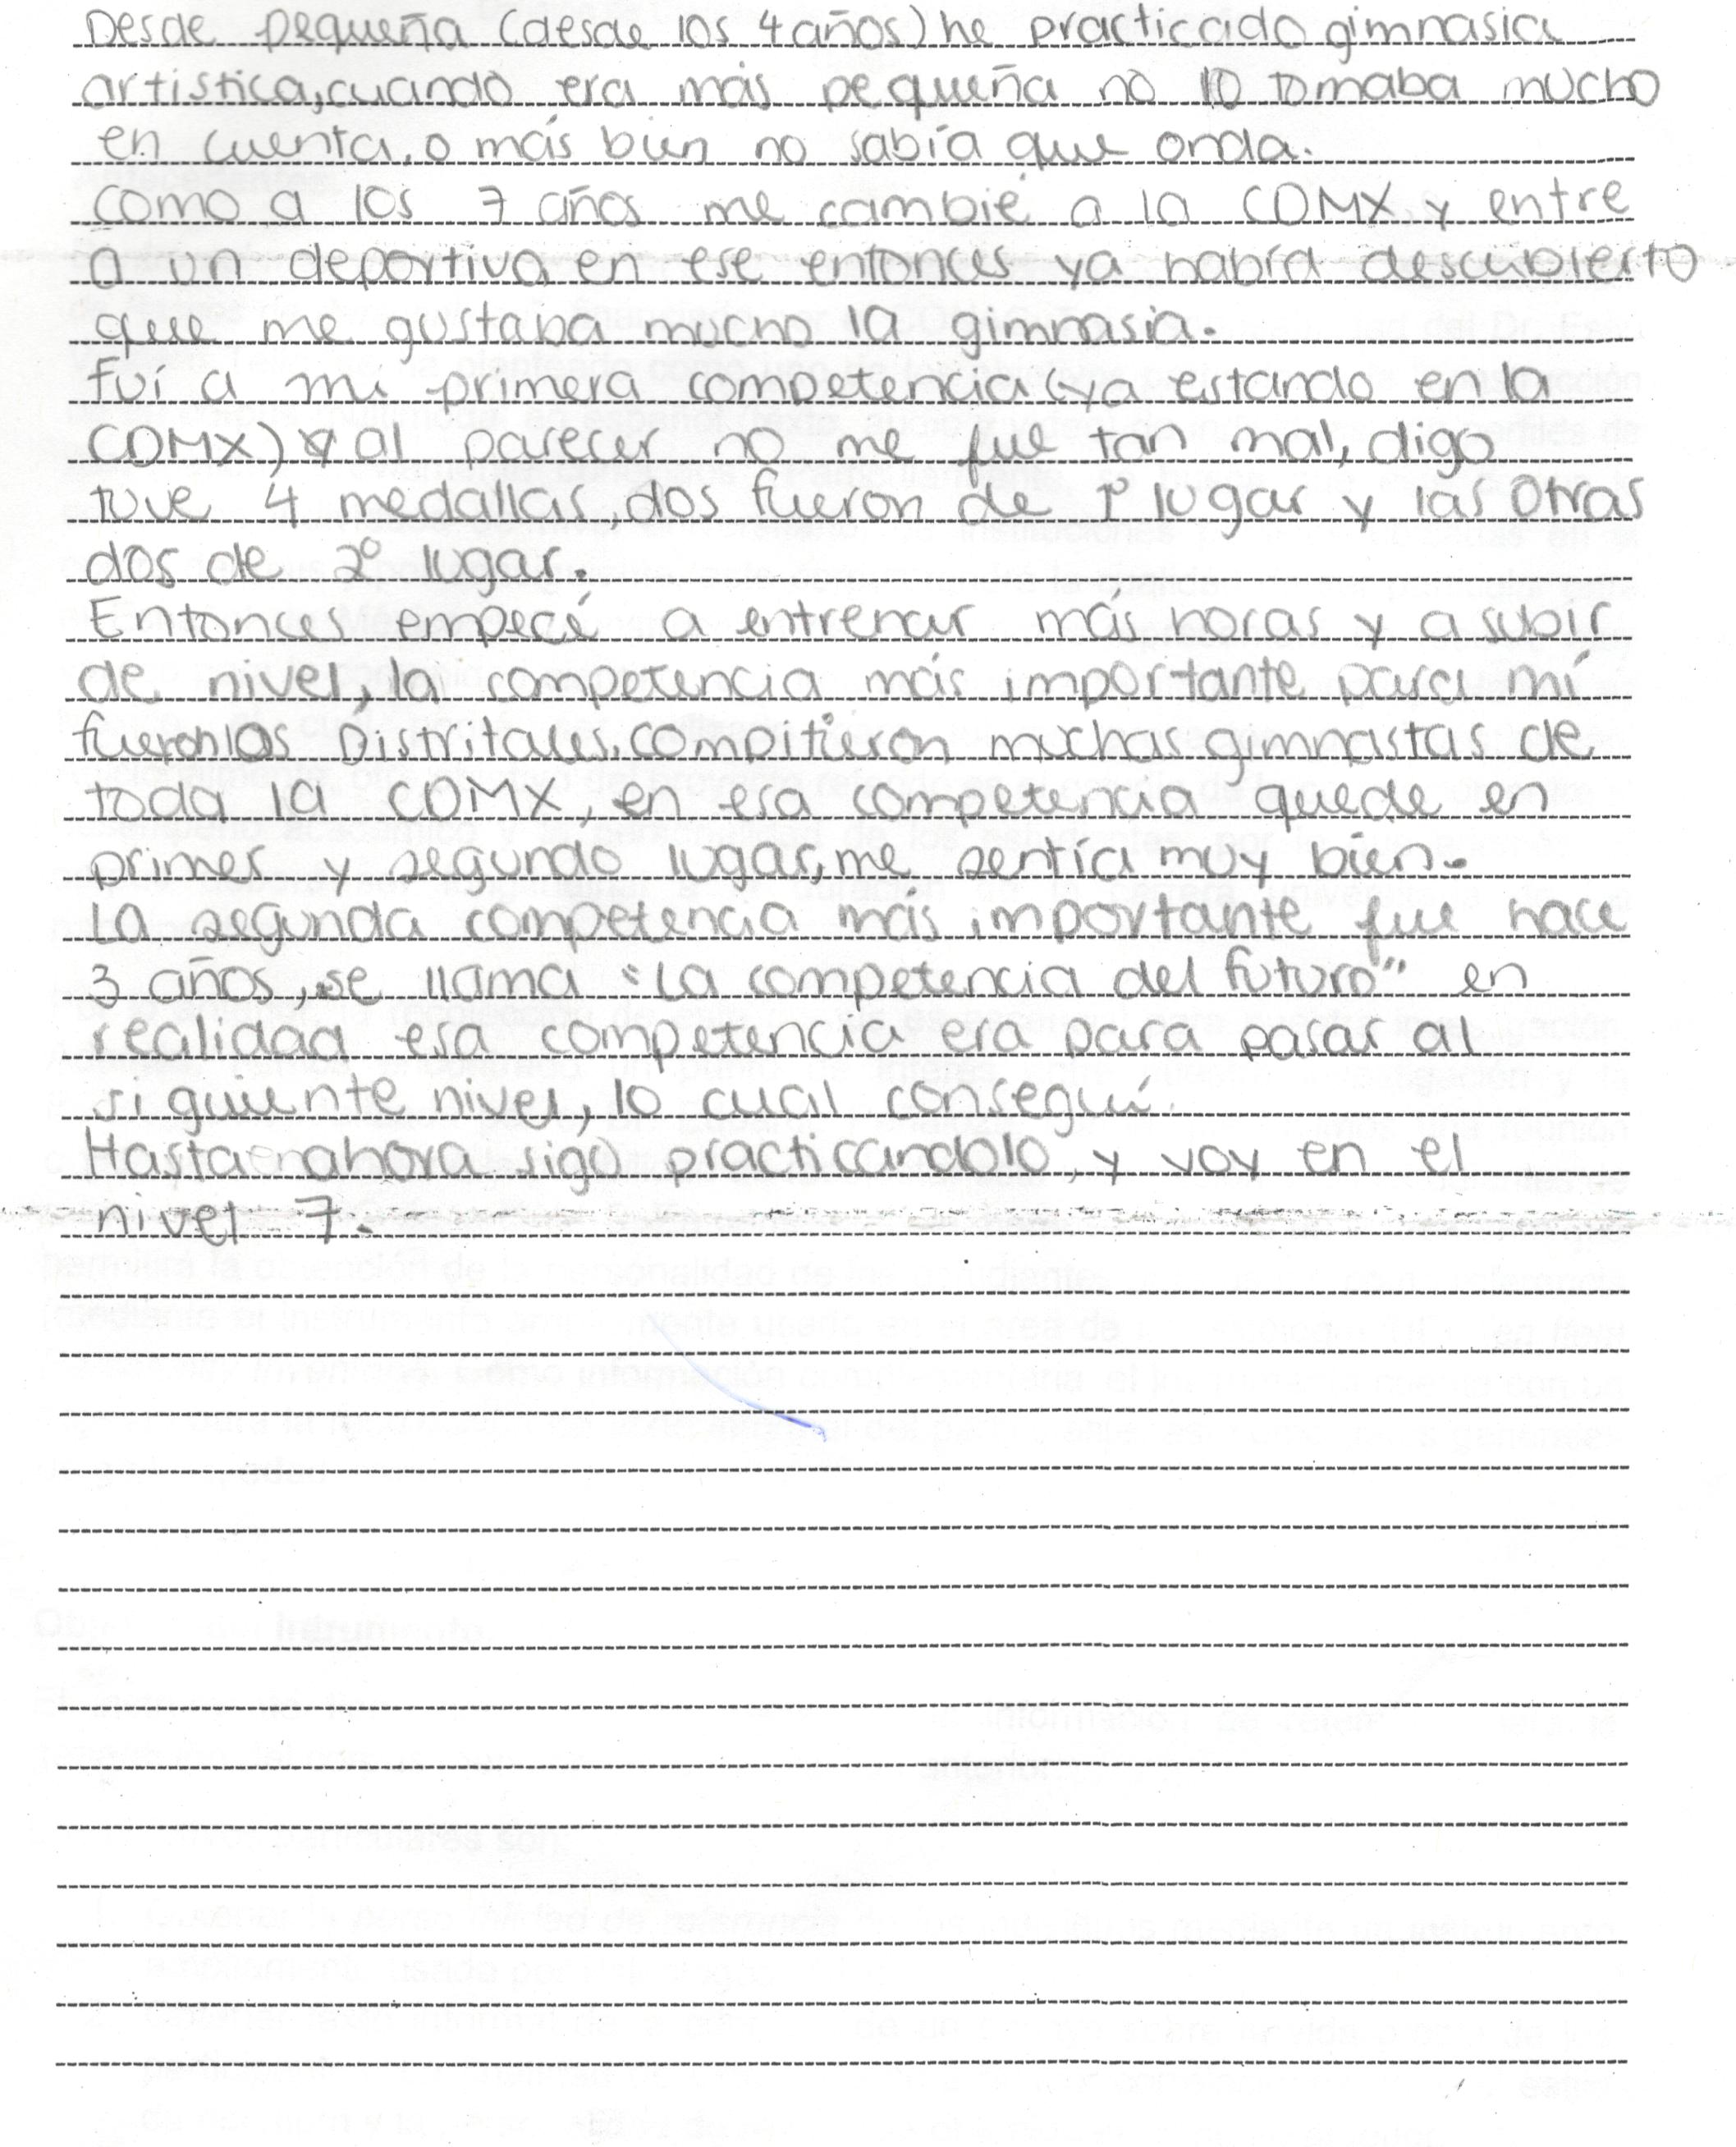 Desde pequeña (desde los 4 años) he practicado gimnasia
artistica, cuando era más pequeña no lo tomaba mucho
en cuenta, o más bien no sabía que onda.
Como a los 7 años me cambié a la CDMX, y entre
a un deportivo, en ese entonces ya había descubierto
que me gustaba mucho la gimnasia.
Fuí a mi primera competencia (ya estando en la
CDMX) y al parecer no me fue tan mal, digo
tuve 4 medallas, dos fueron de 1° lugar y las otras
dos de 2° lugar.
Entonces empecé a entrenar más horas y a subir
de nivel, la competencia más importante para mí
fueron los Distritales, compitieron muchas gimnastas de
toda la CDMX, en esa competencia quede en
primer y segundo lugar, me sentía muy bien.
La segunda competencia más importante fue hace
3 años, se llama "La competencia del futuro" en
realidad esa competencia era para pasar al
siguiente nivel, lo cual conseguí.
Hasta ahora sigo practicandolo, y voy en el
nivel 7.